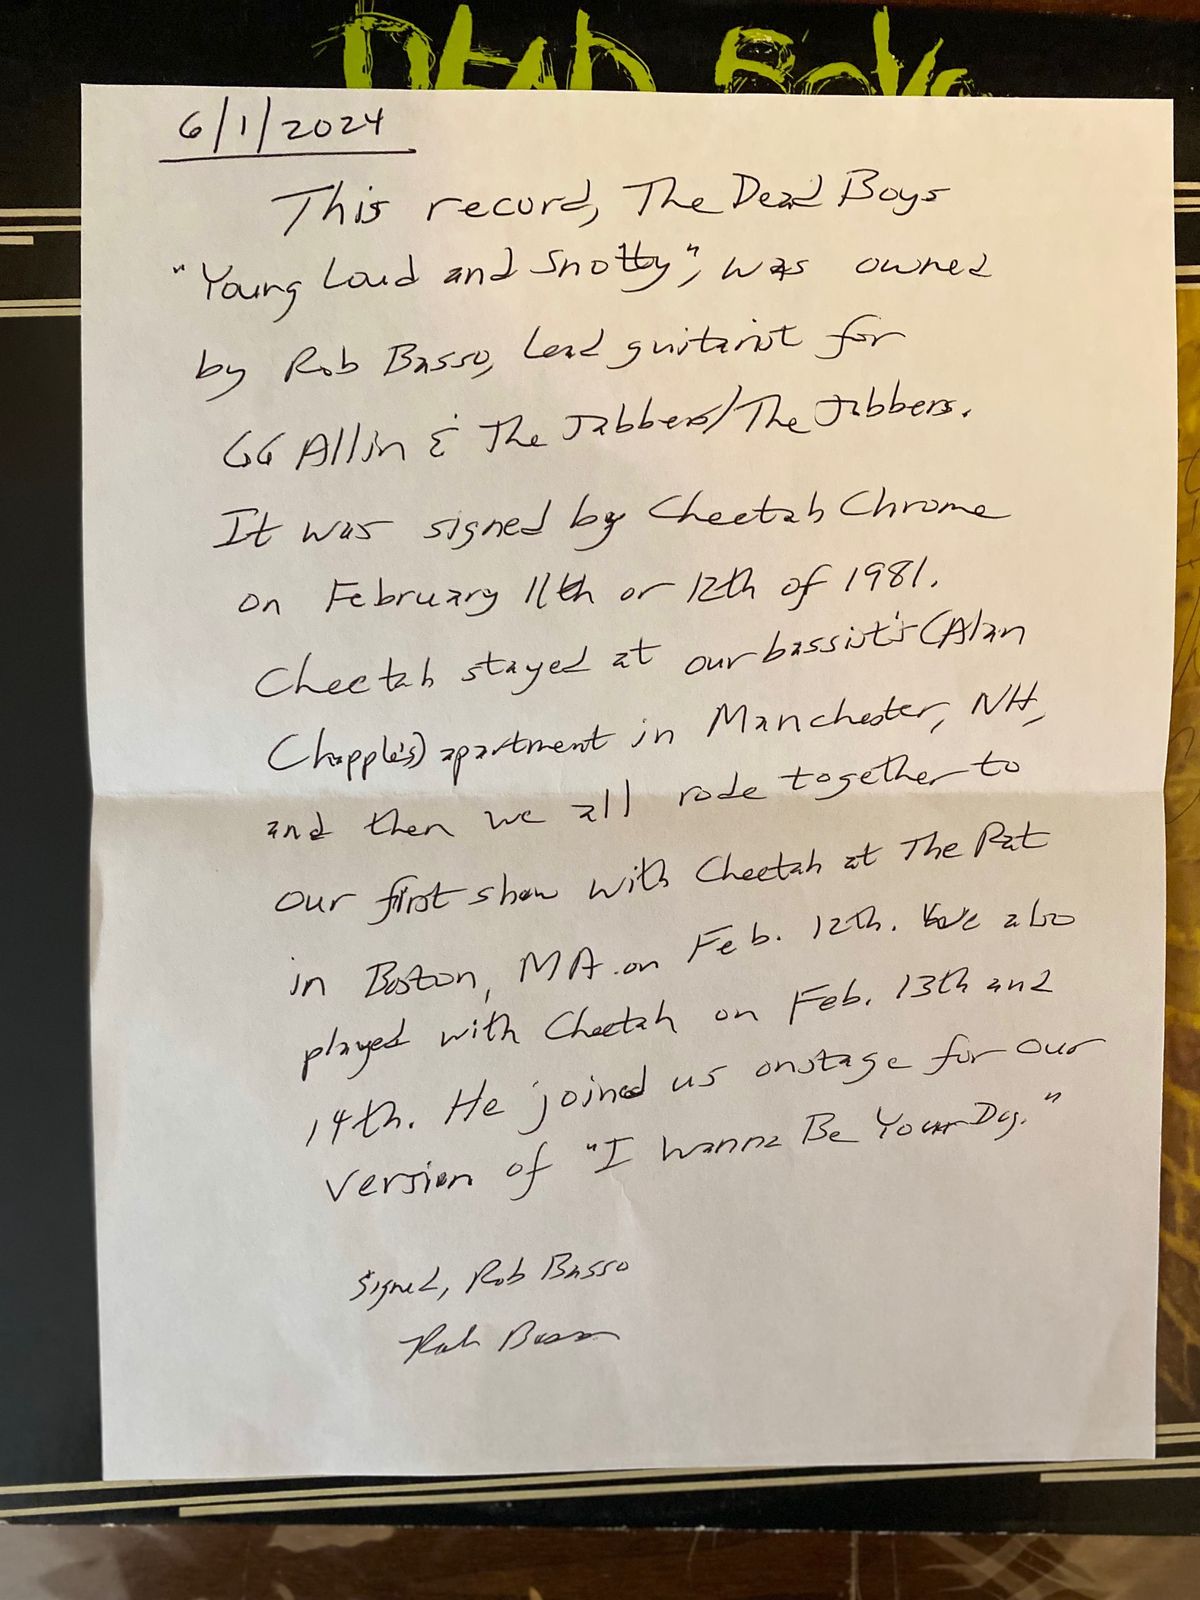 DEAD BOYS
6/1/2024
This record, The Dead Boys
"Young Loud and Snotty", was owned
by Rob Basso, lead guitarist for
GG Allin & The Jabbers/The Jabbers.
It was signed by Cheetah Chrome
on February 11th or 12th of 1981.
Cheetah stayed at our bassist's (Alan
Chapple's) apartment in Manchester, NH,
and then we all rode together to
our first show with Cheetah at The Rat
in Boston, MA on Feb. 12th. We also
played with Cheetah on Feb. 13th and
14th. He joined us onstage for our
version of "I Wanna Be Your Dog."
Signed, Rob Basso
Rob Basso